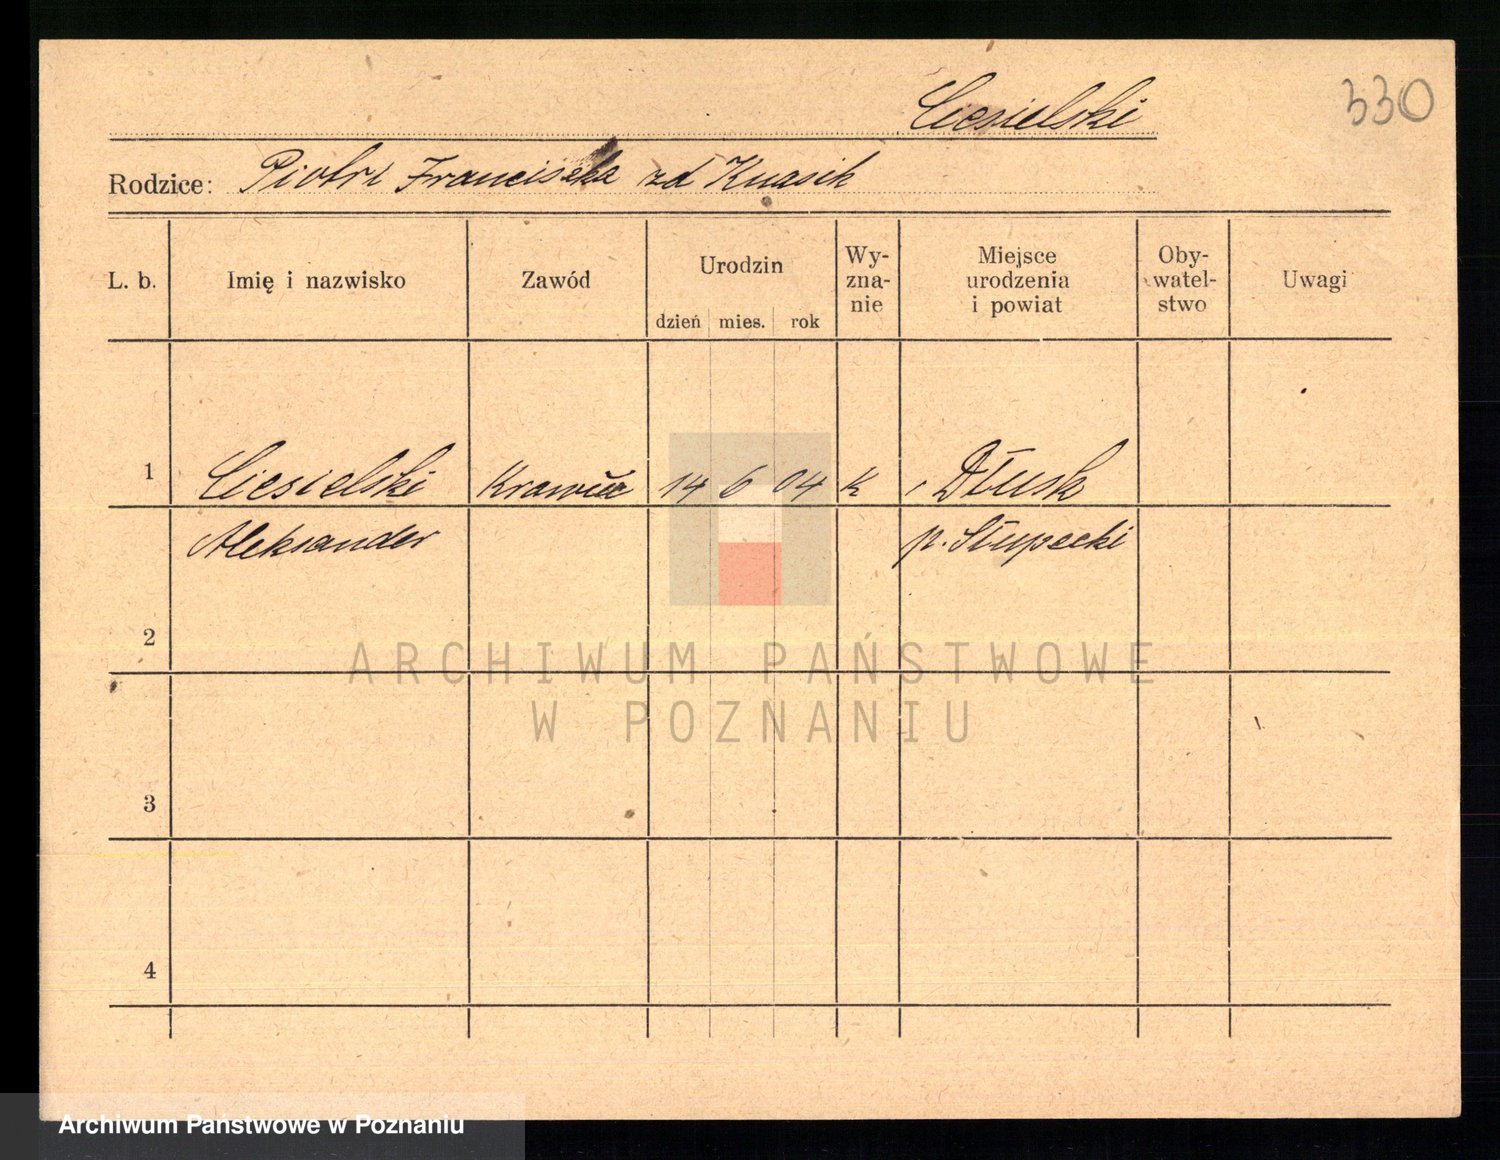 330
Ciesielski
Rodzice: Piotr i Franciszka zd Kuasik
L. b. Imię i nazwisko Zawód Urodzin Wy-zna-nie Miejsce urodzenia i powiat Oby-watel-stwo Uwagi
dzień mies. rok
1 Ciesielski Krawiec 14 6 04 K Dłusk
Aleksander p. Słupecki
2
ARCHIWUM PAŃSTWOWE
W POZNANIU
3
4
Archiwum Państwowe w Poznaniu